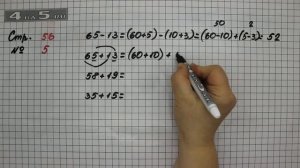 4 a 5 .com
50 2
Стр. 56 65-13=(60+5)-(10+3)=(60-10)+(5-3)=52
№ 5 65+13=(60+10)+
58+19=
35+15=